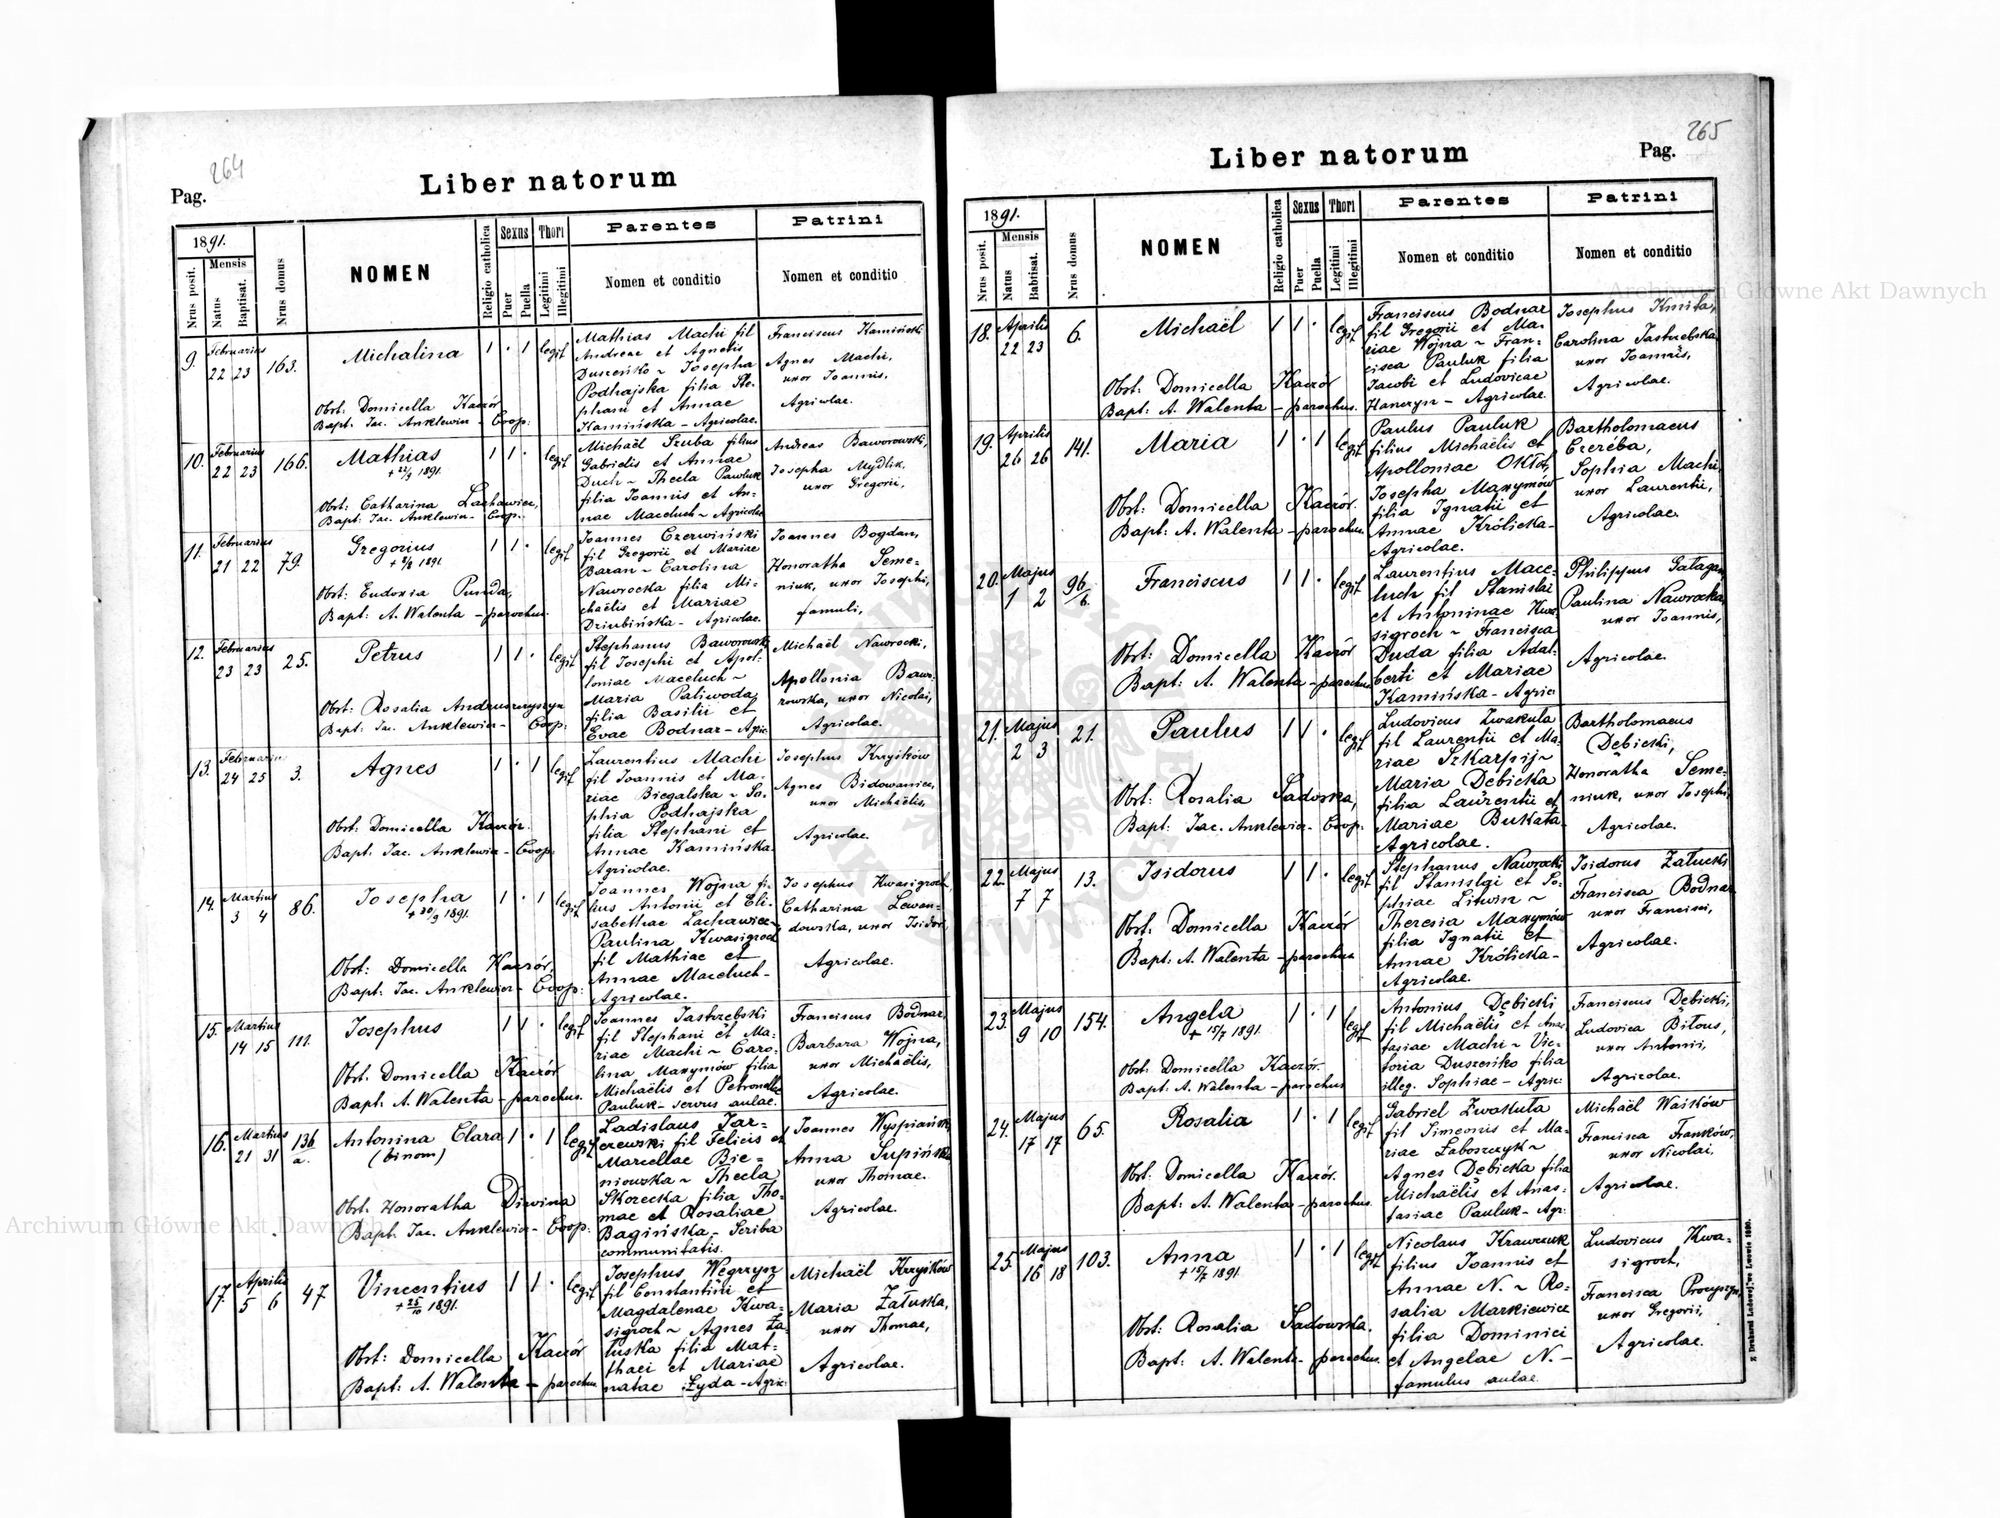 264
Pag.
Liber natorum
1891.
Nrus posit.
Mensis
Natus
Baptisat.
Nrus domus
NOMEN
Religio catholica
Sexus
Puer
Puella
Thori
Legitimi
Illegitimi
Parentes
Nomen et conditio
Patrini
Nomen et conditio
9. Februarius 22 23 163. Michalina 1 . 1 legit
Obst: Domicella Kaczór
Bapt: Jac. Anklewicz - Coop:
Mathias Machi fil
Andreae et Agnetis
Duszeńko ~ Josepha
Podhajska filia Ste-
phani et Annae
Kamińska - Agricolae.
Franciscus Kamiński
Agnes Machi,
uxor Joannis,
Agricolae.
10. Februarius 22 23 166. Mathias 1 1 . legit
+ 22/3 1891.
Obst: Catharina Lachawiec,
Bapt: Jac. Anklewicz - Coop:
Michaël Szuba filius
Gabrielis et Annae
Duch ~ Thecla Pawluk
filia Joannis et An-
nae Maceluch ~ Agricolae
Andreas Baworowski,
Josepha Mydlik,
uxor Gregorii,
11. Februarius 21 22 79. Gregorius 1 1 . legit
1891
Obst: Eudoxia Punda,
Bapt: A. Walenta - parochus.
Joannes Czerwiński
fil Gregorii et Mariae
Baran ~ Carolina
Nawrocka filia Mi-
chaëlis et Mariae
Dziubińska - Agricolae.
Joannes Bogdan,
Honoratha Seme-
niuk, uxor Josephi,
famuli,
12. Februarius 23 23 25. Petrus 1 1 . legit
Obst: Rosalia Andruszczyszyn
Bapt: Jac. Anklewicz - Coop:
Stephanus Baworowski
fil Josephi et Apol-
loniae Maceluch ~
Maria Paliwoda
filia Basilii et
Evae Bodnar - Agric
Michaël Nawrocki,
Apollonia Bawo-
rowska, uxor Nicolai,
Agricolae.
13. Februarius 24 25 3. Agnes 1 . 1 legit
Obst: Domicella Kaczór.
Bapt: Jac. Anklewicz - Coop:
Laurentius Machi
fil Joannis et Ma-
riae Biegalska ~ So-
phia Podhajska
filia Stephani et
Annae Kamińska.
Agricolae.
Josephus Krzyśków
Agnes Bidowaniec,
uxor Michaëlis,
Agricolae.
14. Martius 3 4 86. Josepha 1 . 1 legit
+ 30/9 1891.
Obst: Domicella Kaczór,
Bapt: Jac. Anklewicz - Coop:
Joannes Wojna fi-
lius Antonii et Eli-
sabethae Lachawiec ~
Paulina Kwasigroch
fil Mathiae et
Annae Maceluch -
Agricolae.
Josephus Kwasigroch,
Catharina Lewan-
dowska, uxor Isidori,
Agricolae.
15. Martius 14 15 111. Josephus 1 1 . legit
Obst: Domicella Kaczór
Bapt: A. Walenta - parochus.
Joannes Jastrzebski
fil Stephani et Ma-
riae Machi ~ Caro-
lina Maxymów filia
Michaëlis et Petronellae
Pauluk - servus aulae.
Franciscus Bodnar,
Barbara Wojna,
uxor Michaëlis,
Agricolae.
16. Martius 21 31 136/a. Antonina Clara 1 . 1 legit
(binom)
Obst: Honoratha Diwina
Bapt: Jac. Anklewicz - Coop:
Ladislaus Jar-
czewski fil Felicis et
Marcellae Bie-
niowska ~ Thecla
Skorecka filia Tho-
mae et Rosaliae
Bagińska - Scriba
communitatis.
Joannes Wyspiański
Anna Supińska
uxor Thomae.
Agricolae.
17. Aprilis 5 6 47 Vincentius 1 1 . legit
+ 25/10 1891.
Obst: Domicella Kaczór
Bapt: A. Walenta - parochus
Josephus Węgrzyn
fil Constantini et
Magdalenae Kwa-
sigroch ~ Agnes Za-
łuska filia Mat-
thaei et Mariae
natae Łyda - Agric:
Michaël Krzyśków
Maria Załuska,
uxor Thomae,
Agricolae.
265
Liber natorum
Pag.
1891.
Nrus posit.
Mensis
Natus
Babtisat.
Nrus domus
NOMEN
Religio catholica
Sexus
Puer
Puella
Thori
Legitimi
Illegitimi
Parentes
Nomen et conditio
Patrini
Nomen et conditio
18. Aprilis 22 23 6. Michaël 1 1 . legit
Obst: Domicella Kaczór
Bapt: A. Walenta - parochus.
Franciscus Bodnar
fil Gregorii et Ma-
riae Wojna ~ Fran-
cisca Pauluk filia
Jacobi et Ludovicae
Hanczyn - Agricolae.
Josephus Kmita,
Carolina Jastrzebska
uxor Joannis,
Agricolae.
19. Aprilis 26 26 141. Maria 1 . 1 legit
Obst: Domicella Kaczór.
Bapt: A. Walenta - parochus.
Paulus Pauluk
filius Michaëlis et
Apolloniae Okłot,
Josepha Maxymów
filia Ignatii et
Annae Królicka -
Agricolae.
Bartholomaeus
Czeréba,
Sophia Machi,
uxor Laurentii,
Agricolae.
20. Majus 1 2 96/6. Franciscus 1 1 . legit
Obst: Domicella Kaczór
Bapt: A. Walenta - parochus.
Laurentius Mace-
luch fil Stanislai
et Antoninae Kwa-
sigroch ~ Francisca
Duda filia Adal-
berti et Mariae
Kamińska - Agric
Philippus Gałagan,
Paulina Nawrocka,
uxor Joannis,
Agricolae.
21. Majus 2 3 21. Paulus 1 1 . legit
Obst: Rosalia Sadoska,
Bapt: Jac. Anklewicz - Coop:
Ludovicus Zwakuła
fil Laurentii et Ma-
riae Szkarpij ~
Maria Dębicka
filia Laurentii et
Mariae Bukata.
Agricolae.
Bartholomaeus
Dębicki,
Honoratha Seme-
niuk, uxor Josephi,
Agricolae.
22. Majus 7 7 13. Isidorus 1 1 . legit
Obst: Domicella Kaczór
Bapt: A. Walenta - parochus
Stephanus Nawrocki
fil Stanislai et So-
phiae Litwin ~
Theresia Maxymów
filia Ignatii et
Annae Królicka -
Agricolae.
Isidorus Załuski
Francisca Bodnar
uxor Francisci,
Agricolae.
23. Majus 9 10 154. Angela 1 . 1 legit
+ 15/7 1891.
Obst: Domicella Kaczór.
Bapt: A. Walenta - parochus
Antonius Dębicki
fil Michaëlis et Anas-
tasiae Machi ~ Vic-
toria Duszeńko filia
illeg. Sophiae - Agric:
Franciscus Dębicki,
Ludovica Biłous,
uxor Antonii,
Agricolae.
24. Majus 17 17 65. Rosalia 1 . 1 legit
Obst: Domicella Kaczór.
Bapt: A. Walenta - parochus.
Gabriel Zwakuła
fil Simeonis et Ma-
riae Łaboszczyk ~
Agnes Dębicka filia
Michaëlis et Anas-
tasiae Pauluk - Agr:
Michaël Waśków
Francisca Franków,
uxor Nicolai,
Agricolae.
25. Majus 16 18 103. Anna 1 . 1 legit
+ 15/7 1891.
Obst: Rosalia Sadowska.
Bapt: A. Walenta - parochus.
Nicolaus Krawczuk
filius Joannis et
Annae N. ~ Ro-
salia Markiewicz
filia Dominici
et Angelae N. -
famulus aulae.
Ludovicus Kwa-
sigroch,
Francisca Procyszyn,
uxor Gregorii,
Agricolae.
Z Drukarni Ludowej we Lwowie 1890.
Archiwum Główne Akt Dawnych
Archiwum Główne Akt Dawnych